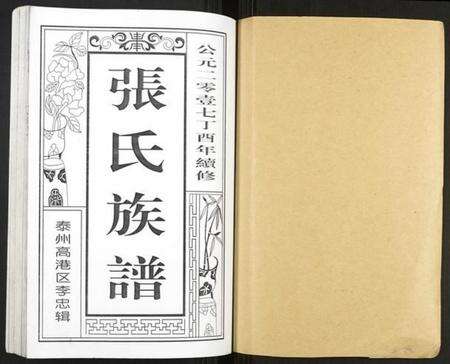 公元二零壹七丁酉年續修
張氏族譜
泰州高港区李忠辑